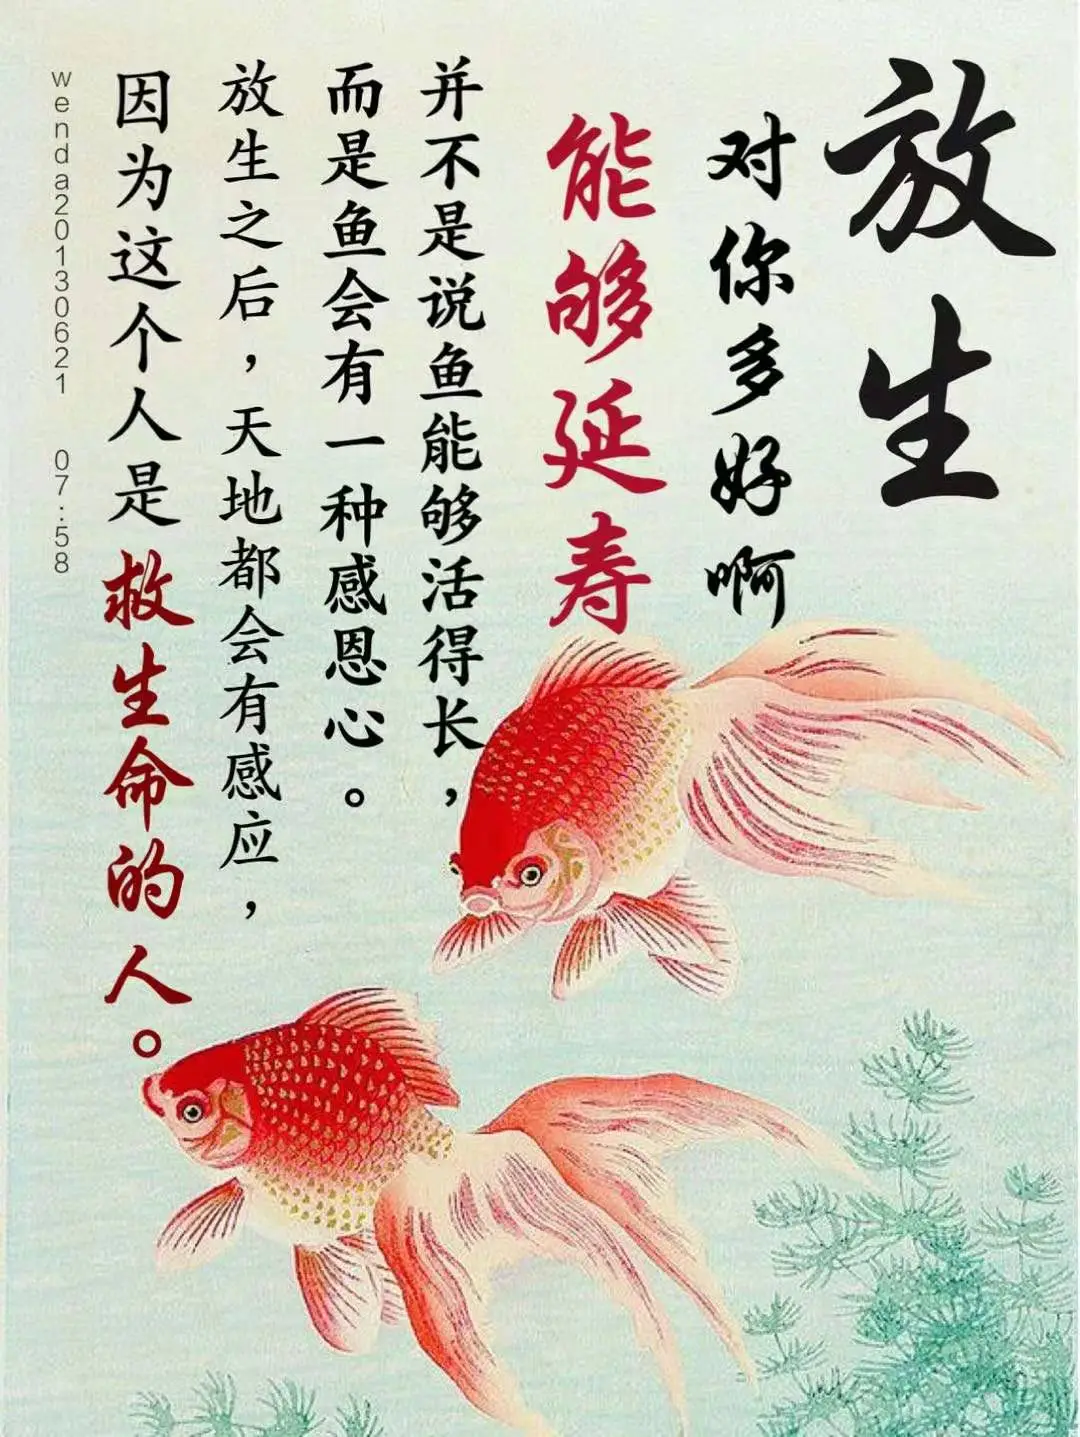 放生
对你多好啊
能够延寿
并不是说鱼能够活得长，
而是鱼会有一种感恩心。
放生之后，天地都会有感应，
因为这个人是救生命的人。
wenda20130621 07:58